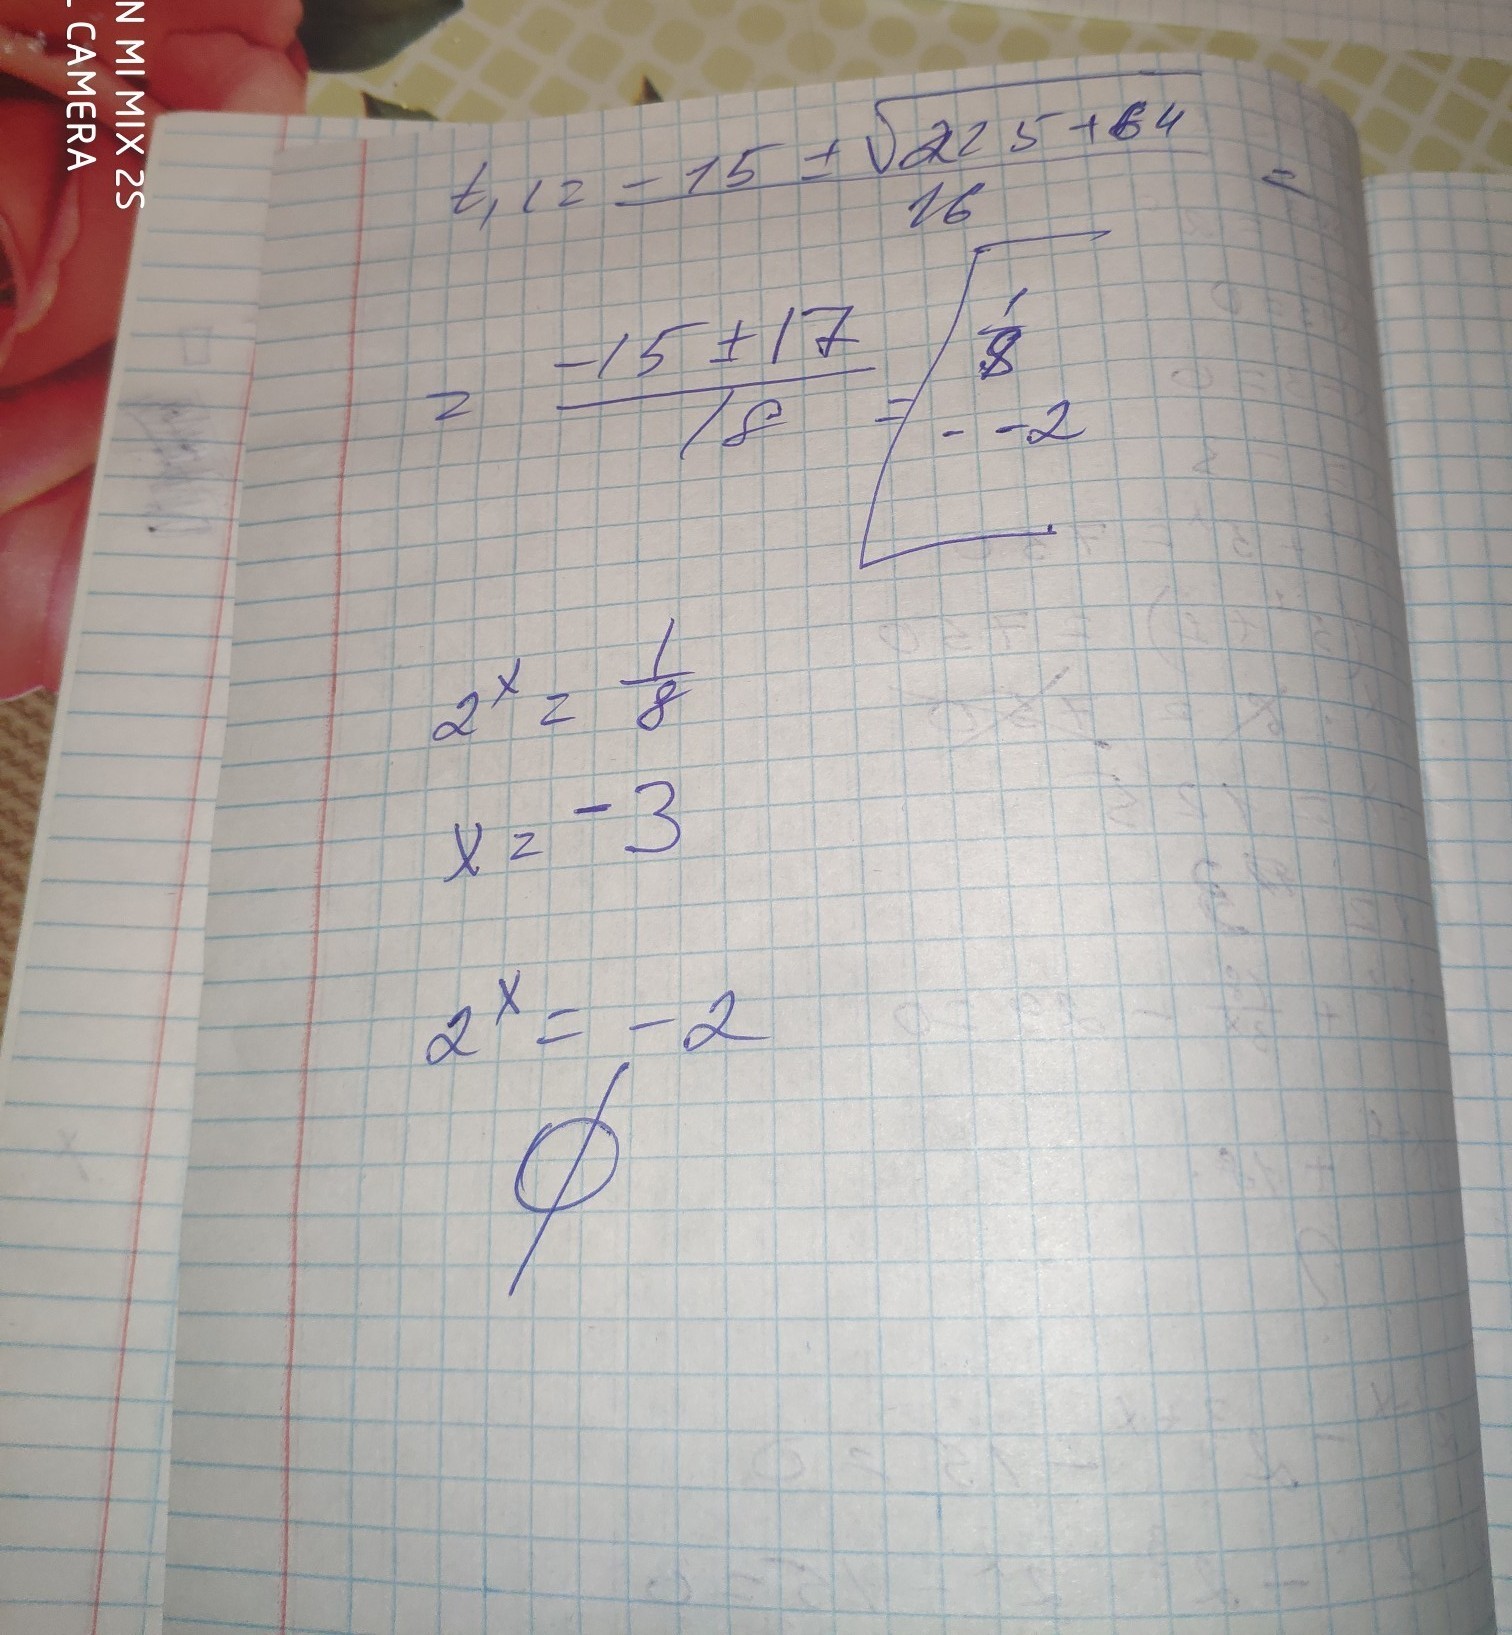 N MI MIX 2S
L CAMERA
t,12 = -15 ± √225+64 / 16 =
= -15 ± 17 / 18 = [ 1/8
- -2
2^x = 1/8
x = -3
2^x = -2
∅